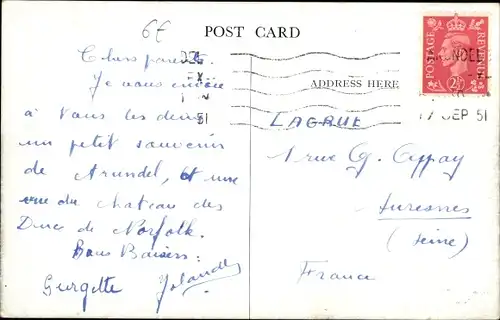 6€
POST CARD
Chers parents.
Je vous envoie
à vous les deux
un petit souvenir
de Arundel, et une
vue du chateau des
Ducs de Norfolk.
Bons Baisers:
Georgette Yolande
POSTAGE REVENUE
2½
ARUNDEL
17 SEP 51
51
ADDRESS HERE
LAGRUE
1 rue G. Appay
Suresnes
(Seine)
France